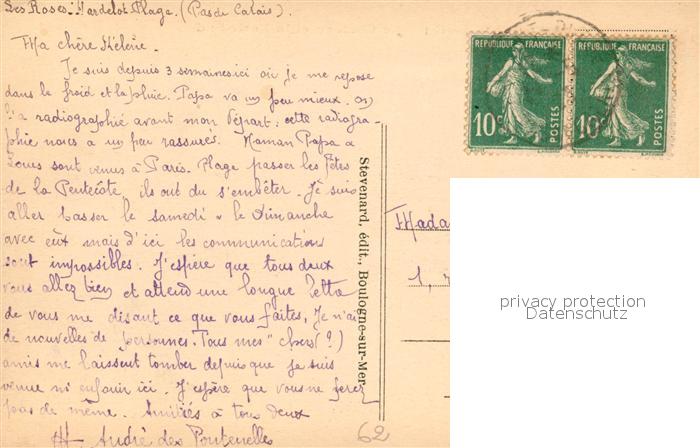 Les Roses. Hardelot Plage. (Pas de Calais).
Ma chère Hélène.
Je suis depuis 3 semaines ici où je me repose
dans le froid et la pluie. Papa va un peu mieux. On
l'a radiographié avant mon départ: cette radiogra-
phie nous a un peu rassurés. Maman Papa &
Louis sont venus à Paris-Plage passer les fêtes
de la Pentecôte, ils ont du s'embêter. Je suis
aller passer le samedi & le Dimanche
avec eux mais d'ici les communications
sont impossibles. J'espère que tous deux
vous allez bien et attend une longue lettre
de vous me disant ce que vous faites. Je n'ai
de nouvelles de personnes. Tous mes "chers (?)
amis me laissent tomber depuis que je suis
venue m'enfouir ici. J'espère que vous ne ferez
pas de même. Amitiés à tous deux
André des Pontenelles
62
Stevenard, édit., Boulogne-sur-Mer
REPUBLIQUE FRANÇAISE
10c
POSTES
REPUBLIQUE FRANÇAISE
10c
POSTES
Mada
1, r
privacy protection
Datenschutz